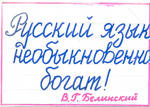 Русский язык
необыкновенно
богат!
В.Г. Белинский